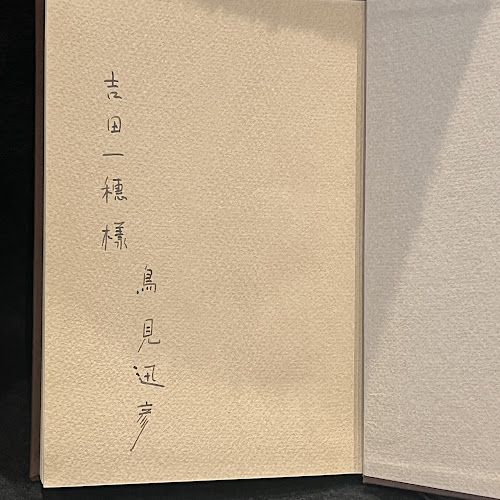 吉田一穂様
鳥見迅彦